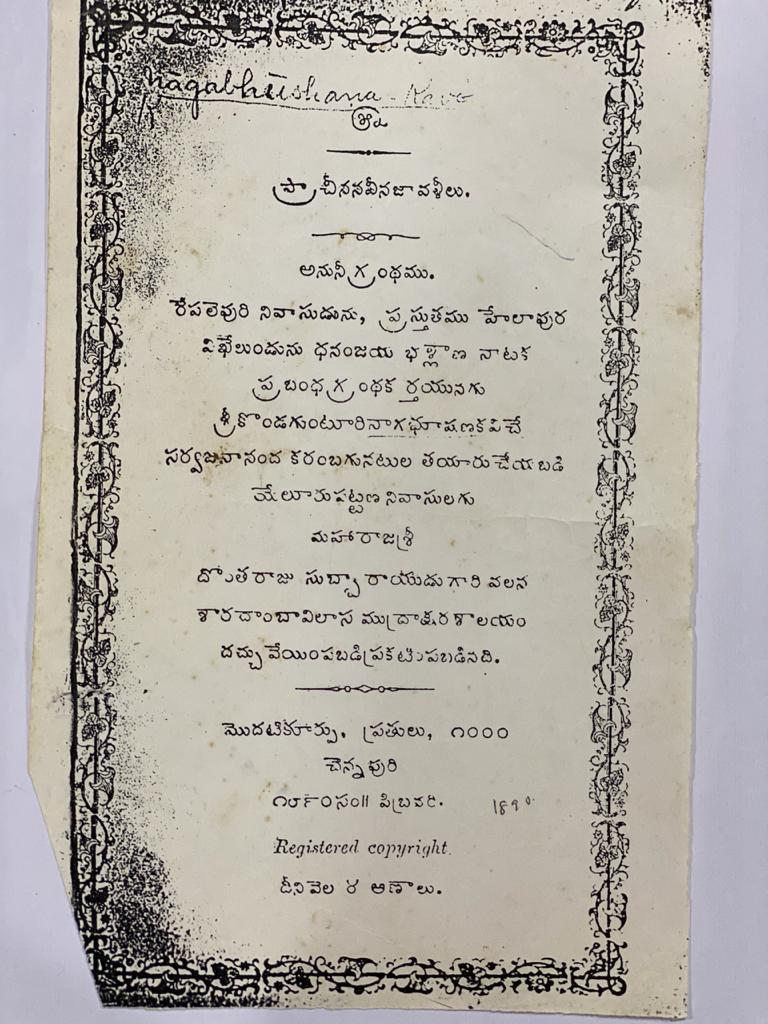 Nagabhushana Kavi
శ్రీ
ప్రాచీననవీనజావళీలు.
అనునీగ్రంథము.
రేపలెపురి నివాసుడును, ప్రస్తుతము హేలాపుర
విఖేలుండును ధనంజయ నాటక
ప్రబంధగ్రంథకర్తయునగు
శ్రీకొండగుంటూరినాగభూషణకవిచే
సర్వజనానంద కరంబగునటుల తయారుచేయబడి
యేలూరుపట్టణ నివాసులగు
మహారాజశ్రీ
దోంతరాజు సుబ్బారాయుడుగారి వలన
శారదాంబావిలాస ముద్రాక్షరశాలయం
దచ్చువేయింపబడిప్రకటింపబడినది.
మొదటికూర్పు, ప్రతులు, ౧౦౦౦
చెన్నపురి
౧౮౯౦సం॥ పిబ్రవరి. 1890
Registered copyright.
దీనివెల ౪ అణాలు.